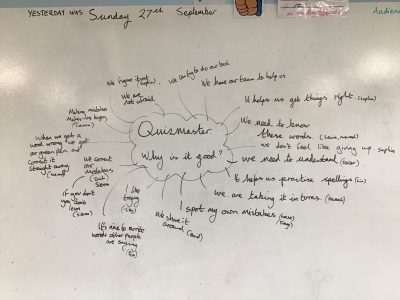 YESTERDAY WAS Sunday 27th September
Audien
We figure it out (Sophia)
We can try to do our best
We have our team to help us
We are not afraid.
It helps us get things right.
Making mistakes
Makes
When we get a
word wrong we get
our green pen and
correct it
straight away
Quizmaster
Why is it good?
We need to know
these words.
We don't feel like giving up. Sophia
we need to understand
We correct
our
mistakes
It helps us practise spellings
If you don't
you don't
learn
I like
trying
we are taking it in turns.
I spot my own mistakes
We share it
around
It's nice to write
words other people
are saying